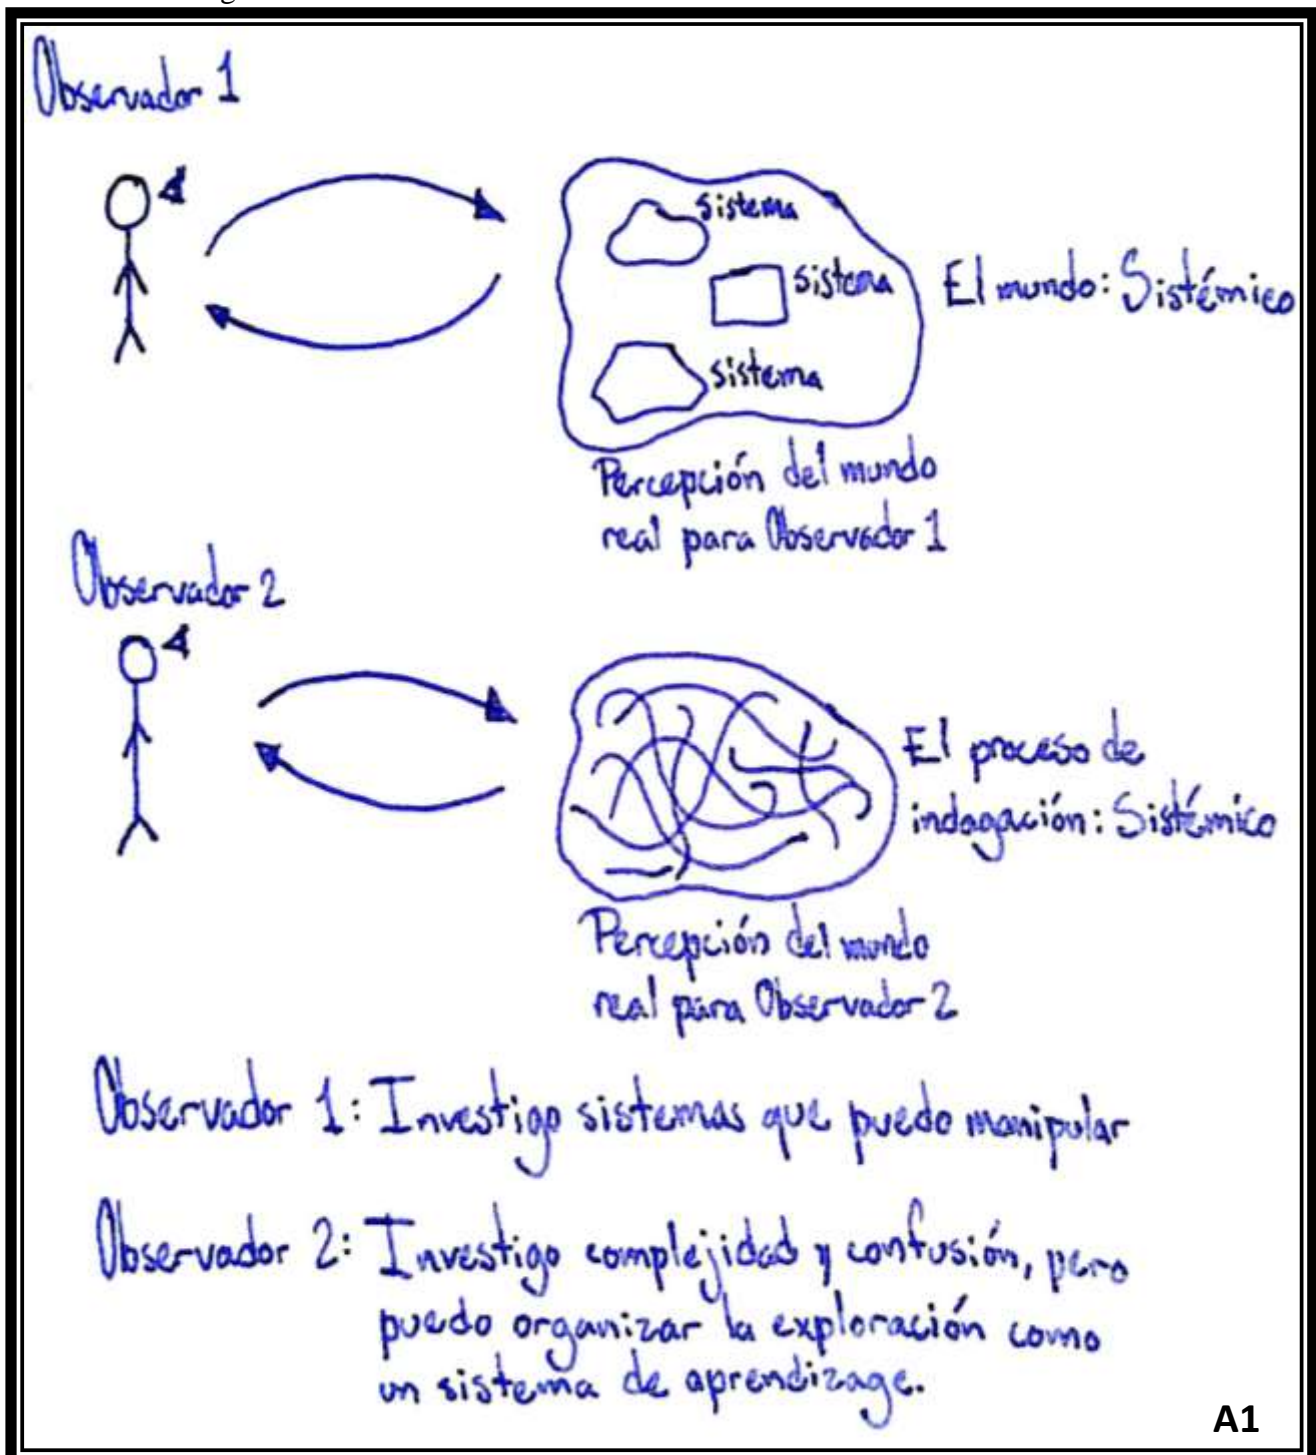 Observador 1
sistema
sistema
sistema
El mundo: Sistémico
Percepción del mundo
real para Observador 1
Observador 2
El proceso de
indagación: Sistémico
Percepción del mundo
real para Observador 2
Observador 1: Investigo sistemas que puedo manipular
Observador 2: Investigo complejidad y confusión, pero
puedo organizar la exploración como
un sistema de aprendizage.
A1